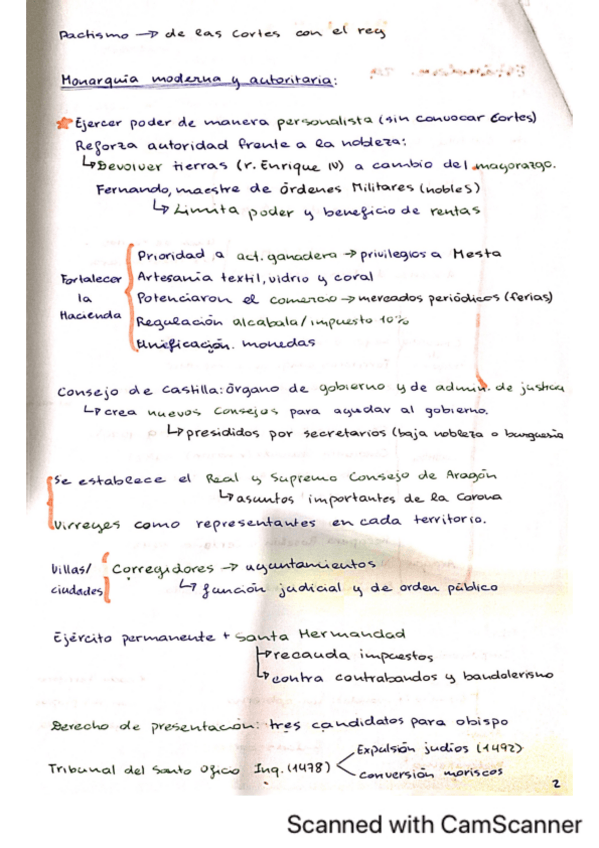 Pactismo → de las Cortes con el rey
Monarquía moderna y autoritaria:
★ Ejercer poder de manera personalista (sin convocar Cortes)
Reforza autoridad frente a la nobleza:
↳ Devolver tierras (r. Enrique IV) a cambio del mayorazgo.
Fernando, maestre de órdenes Militares (nobles)
↳ Limita poder y beneficio de rentas
Fortalecer la Hacienda
Prioridad a act. ganadera → privilegios a Mesta
Artesanía textil, vidrio y coral
Potenciaron el comercio → mercados periódicos (ferias)
Regulación alcabala/impuesto 10%
Unificación. monedas
Consejo de Castilla: órgano de gobierno y de admin. de justicia
↳ crea nuevos Consejos para ayudar al gobierno.
↳ presididos por secretarios (baja nobleza o burguesía
Se establece el Real y Supremo Consejo de Aragón
↳ asuntos importantes de la Corona
Virreyes como representantes en cada territorio.
Villas/ciudades
Corregidores → ayuntamientos
↳ función judicial y de orden público
Ejército permanente + Santa Hermandad
↳ recauda impuestos
↳ contra contrabandos y bandolerismo
Derecho de presentación: tres candidatos para obispo
Tribunal del Santo Oficio Inq. (1478)
Expulsión judíos (1492)
conversión moriscos
2
Scanned with CamScanner